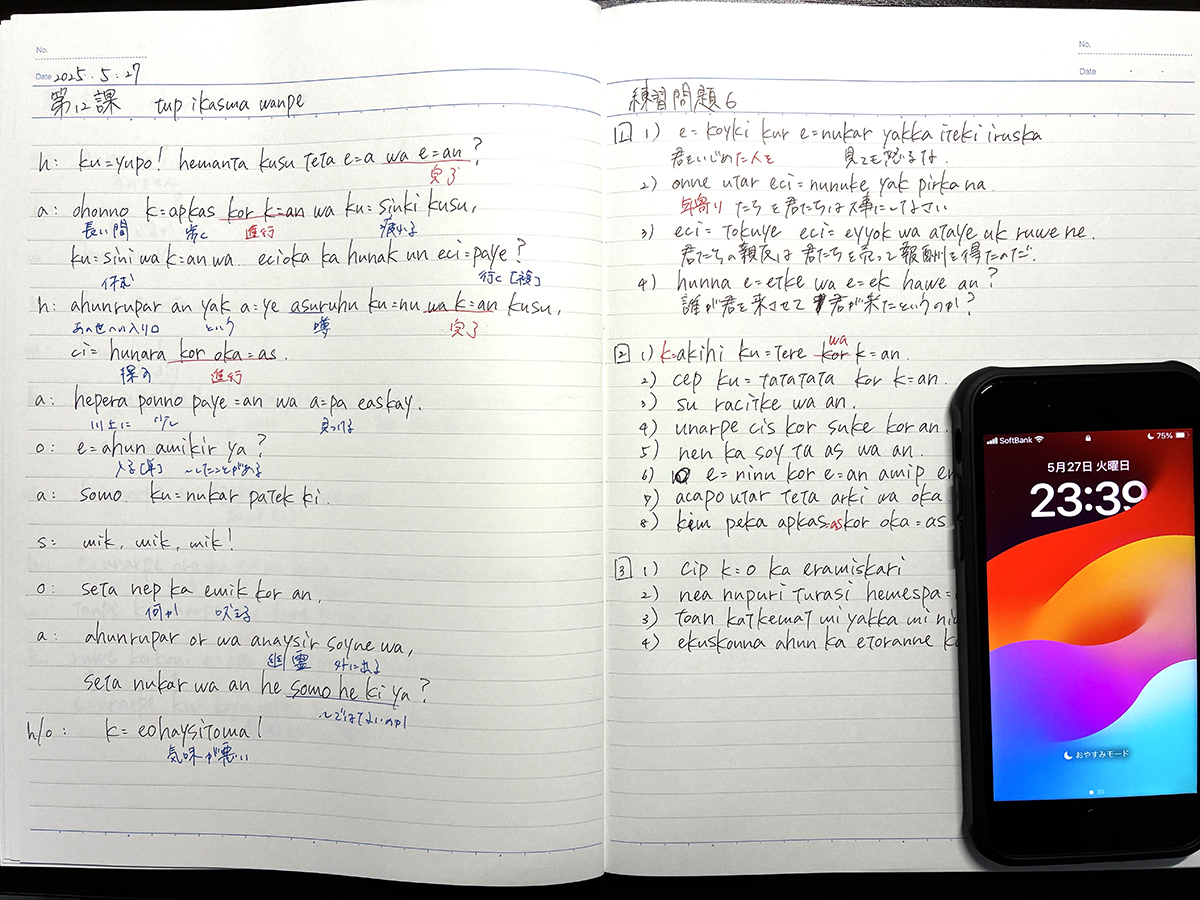 No.
Date 2025.5.27
第12課 tup ikasma wanpe
h: ku=yupo! hemanta kusu teta e=a wa e=an?
完了
a: ohonno k=apkas kor k=an wa ku=sinki kusu,
長い間 歩く 進行 疲れる
ku=sini wa k=an wa ecioka ka hunak un eci=paye?
休む 行く[複]
h: ahunrupar an yak a=ye asuruhu ku=nu wa k=an kusu,
あの世への入り口 という 噂 完了
ci=hunara kor oka=as.
探す 進行
a: hepera ponno paye=an wa a=pa easkay.
川上に 少し 見つける
o: e=ahun amikir ya?
入る[単] ~したことがある
a: somo ku=nukar patek ki.
s: mik, mik, mik!
o: seta nep ka emik kor an.
何か 吠える
a: ahunrupar or wa anaysir soyne wa,
幽霊 外に出る
seta nukar wa an he somo he ki ya?
~ではないのか
h/o: k=eohaysitoma!
気味が悪い
No.
Date
練習問題6
1 1) e=koyki kur e=nukar yakka iteki iruska
君をいじめた人を 見ても怒るな.
2) onne utar eci=nunuke yak pirka na.
年寄りたちを君たちは大事にしてなさい
3) eci=tokuye eci=eyyok wa ataye uk ruwe ne.
君たちの親友は君たちを売って報酬を得たのだ.
4) hunna e=etke wa e=ek hawe an?
誰が君を来させて君が来たというのか?
2 1) k=akihi ku=tere kor wa k=an.
2) cep ku=tatatata kor k=an.
3) su racitke wa an.
4) unarpe cis kor suke kor an.
5) nen ka soy ta as wa an.
6) e=ninu kor e=an amip
7) acapo utar teta arki wa oka
8) kim peka apkas=as kor oka=as
3 1) cip k=o ka eramiskari
2) nea nupuri turasi hemespa=
3) toan katkemat mi yakka mi
4) ekuskonna ahun ka etoranne
SoftBank 75%
5月27日 火曜日
23:39
おやすみモード